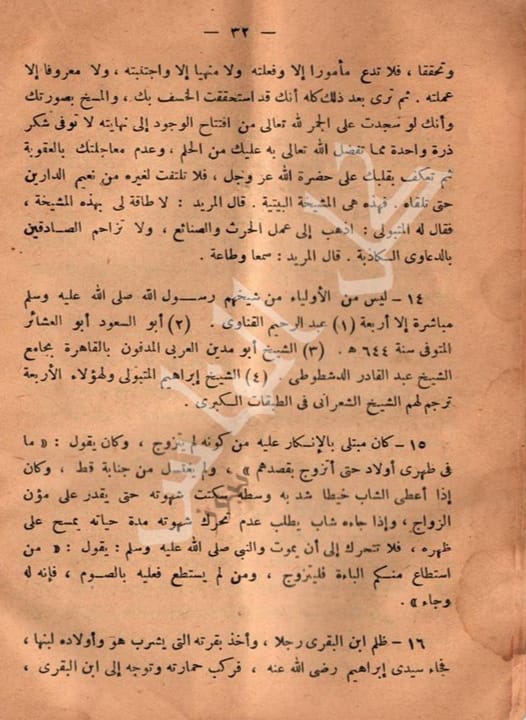 — ٣٢ —
وتحققا ، فلا تدع مأمورا إلا وفعلته ولا منهيا إلا واجتنبته ، ولا معروفا إلا
عملته . ثم ترى بعد ذلك كله أنك قد استحققت الخسف بك ، والمسخ بصورتك
وأنك لو سجدت على الجمر لله تعالى من افتتاح الوجود إلى نهايته لا توفى شكر
ذرة واحدة مما تفضل الله تعالى به عليك من الحلم ، وعدم معاجلتك بالعقوبة
ثم تعكف بقلبك على حضرة الله عز وجل ، فلا تلتفت لغيره من نعيم الدارين
حتى تلقاه . فهذه هى المشيخة البيتية . قال المريد : لا طاقة لى بهذه المشيخة ،
فقال له المتبولى : اذهب إلى عمل الحرث والصنائع ، ولا تزاحم الصادقين
بالدعاوى الكاذبة . قال المريد : سمعا وطاعة .
١٤ – ليس من الأولياء من شيخهم رسول الله صلى الله عليه وسلم
مباشرة إلا أربعة (١) عبد الرحيم القناوى . (٢) أبو السعود أبو العشائر
المتوفى سنة ٦٤٤ ه . (٣) الشيخ أبو مدين العربى المدفون بالقاهرة بجامع
الشيخ عبد القادر الدشطوطى . (٤) الشيخ إبراهيم المتبولى ولهؤلاء الأربعة
ترجم لهم الشيخ الشعرانى فى الطبقات الكبرى .
١٥ – كان مبتلى بالإنكار عليه من كونه لم يتزوج ، وكان يقول : « ما
فى ظهرى أولاد حتى أتزوج بقصدهم » ، ولم يغتسل من جنابة قط ، وكان
إذا أعطى الشاب خيطا شد به وسطه سكنت شهوته حتى يقدر على مؤن
الزواج ، وإذا جاءه شاب يطلب عدم تحرك شهوته مدة حياته يمسح على
ظهره ، فلا تتحرك إلى أن يموت والنبي صلى الله عليه وسلم : يقول : « من
استطاع منكم الباءة فليتزوج ، ومن لم يستطع فعليه بالصوم ، فإنه له
وجاء » .
١٦ – ظلم ابن البقرى رجلا ، وأخذ بقرته التى يشرب هو وأولاده لبنها ،
فجاء سيدى إبراهيم رضى الله عنه ، فركب حمارته وتوجه إلى ابن البقرى ،